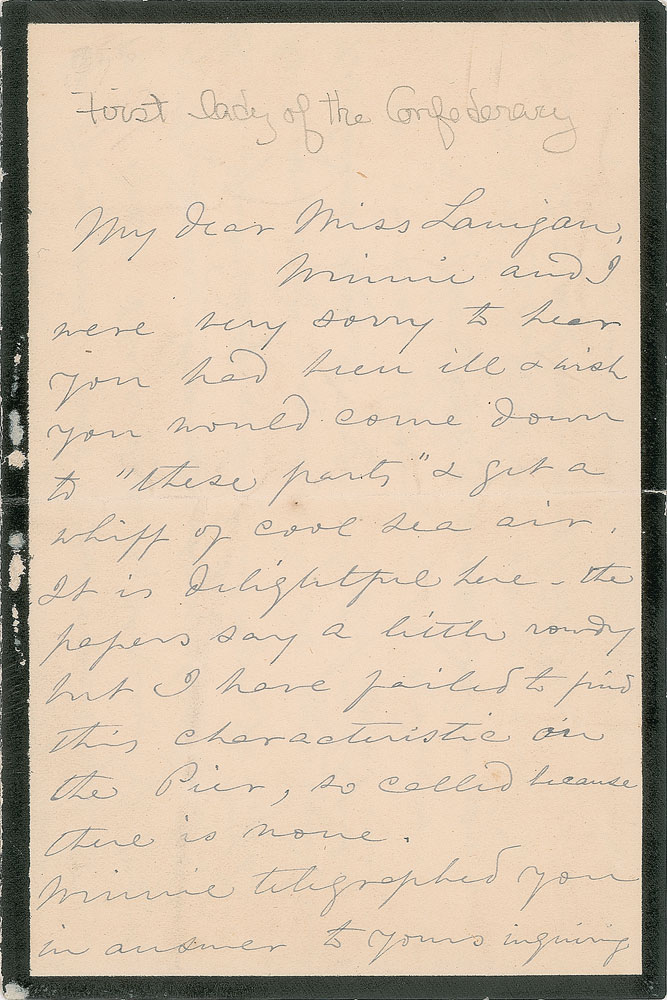 First lady of the Confederacy
My dear Miss Lanigan,
Winnie and I
were very sorry to hear
you had been ill & wish
you would come down
to "these parts" & get a
whiff of cool sea air.
It is delightful here - the
papers say a little rowdy
but I have failed to find
this characteristic on
the Pier, so called because
there is none.
Winnie telegraphed you
in answer to yours inquiring